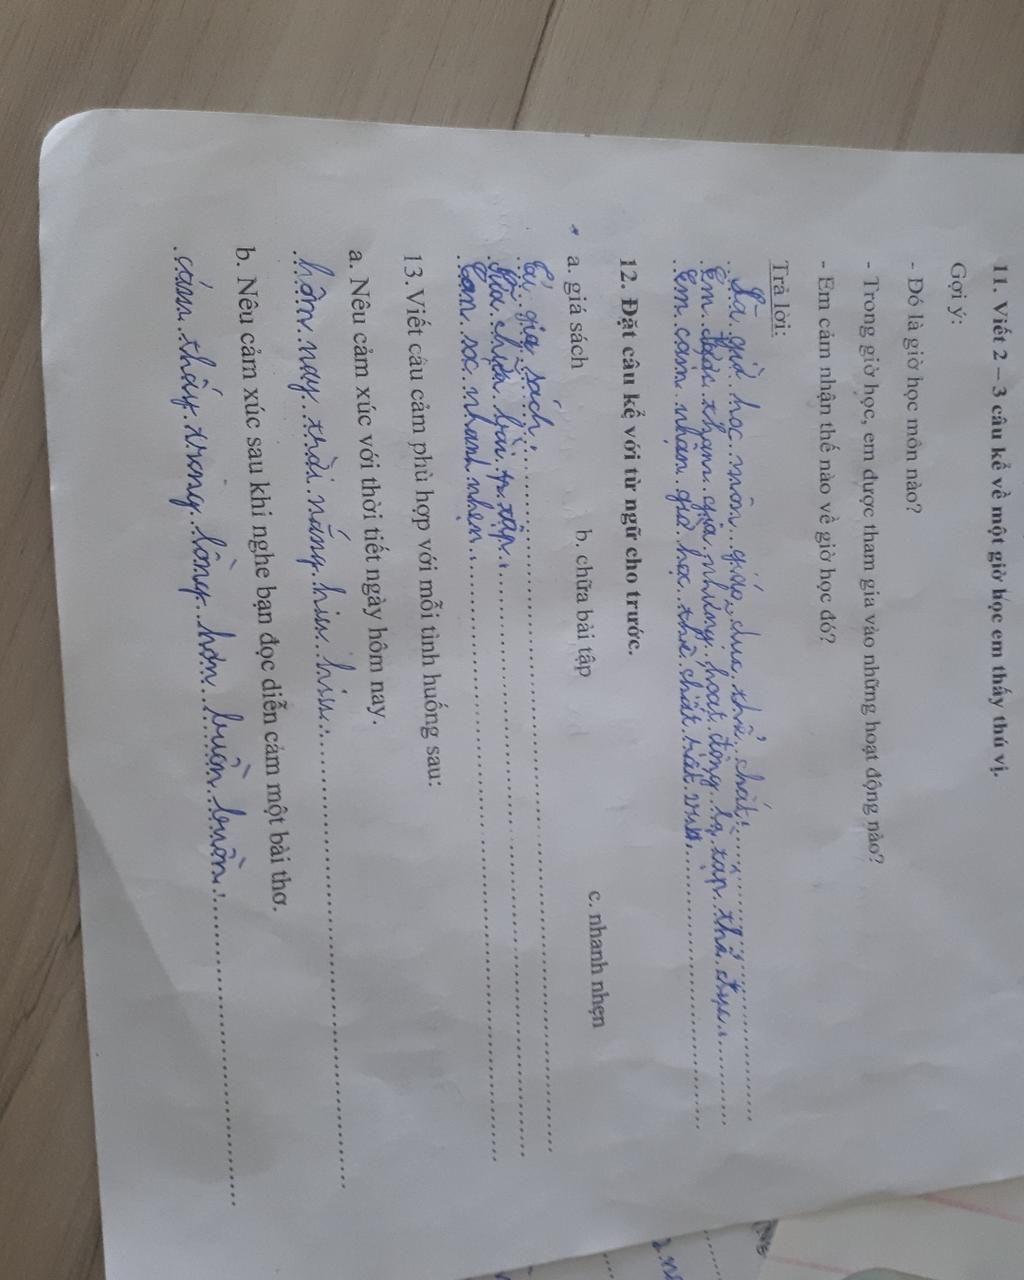 11. Viết 2 – 3 câu kể về một giờ học em thấy thú vị.
Gợi ý:
- Đó là giờ học môn nào?
- Trong giờ học, em được tham gia vào những hoạt động nào?
- Em cảm nhận thế nào về giờ học đó?
Trả lời:
Là giờ học môn giáo dục thể chất.
Em được tham gia những hoạt động là tập thể dục.
Em cảm nhận giờ học thể chất rất vui.
12. Đặt câu kể với từ ngữ cho trước.
a. giá sách b. chữa bài tập c. nhanh nhẹn
giá sách.
bài tập.
nhanh nhẹn
13. Viết câu cảm phù hợp với mỗi tình huống sau:
a. Nêu cảm xúc với thời tiết ngày hôm nay.
hôm nay trời nắng hiu hiu.
b. Nêu cảm xúc sau khi nghe bạn đọc diễn cảm một bài thơ.
cảm thấy trong lòng hơn buồn buồn.